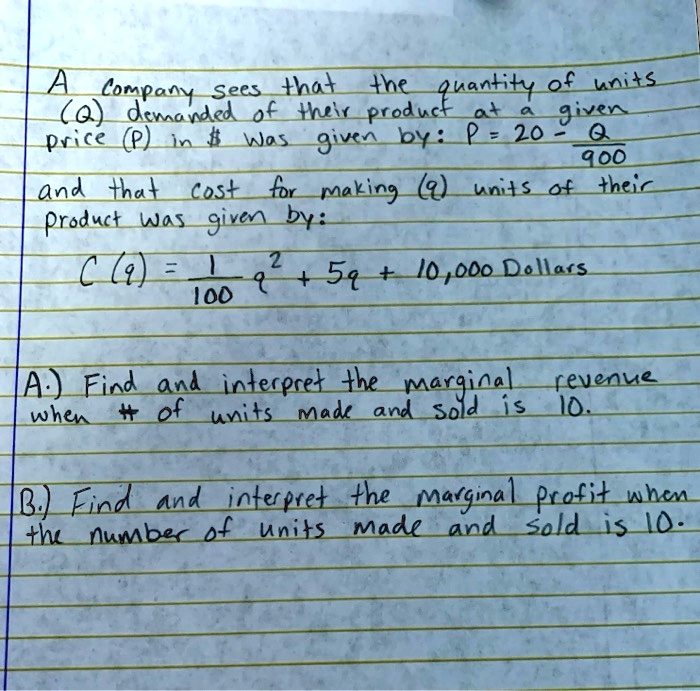 A Company sees that the quantity of units
(Q) demanded of their product at a given
price (P) in $ was given by: P = 20 - Q/900
and that cost for making (q) units of their
product was given by:
C(q) = 1/100 q² + 5q + 10,000 Dollars
A.) Find and interpret the marginal revenue
when # of units made and sold is 10.
B.) Find and interpret the marginal profit when
the number of units made and sold is 10.